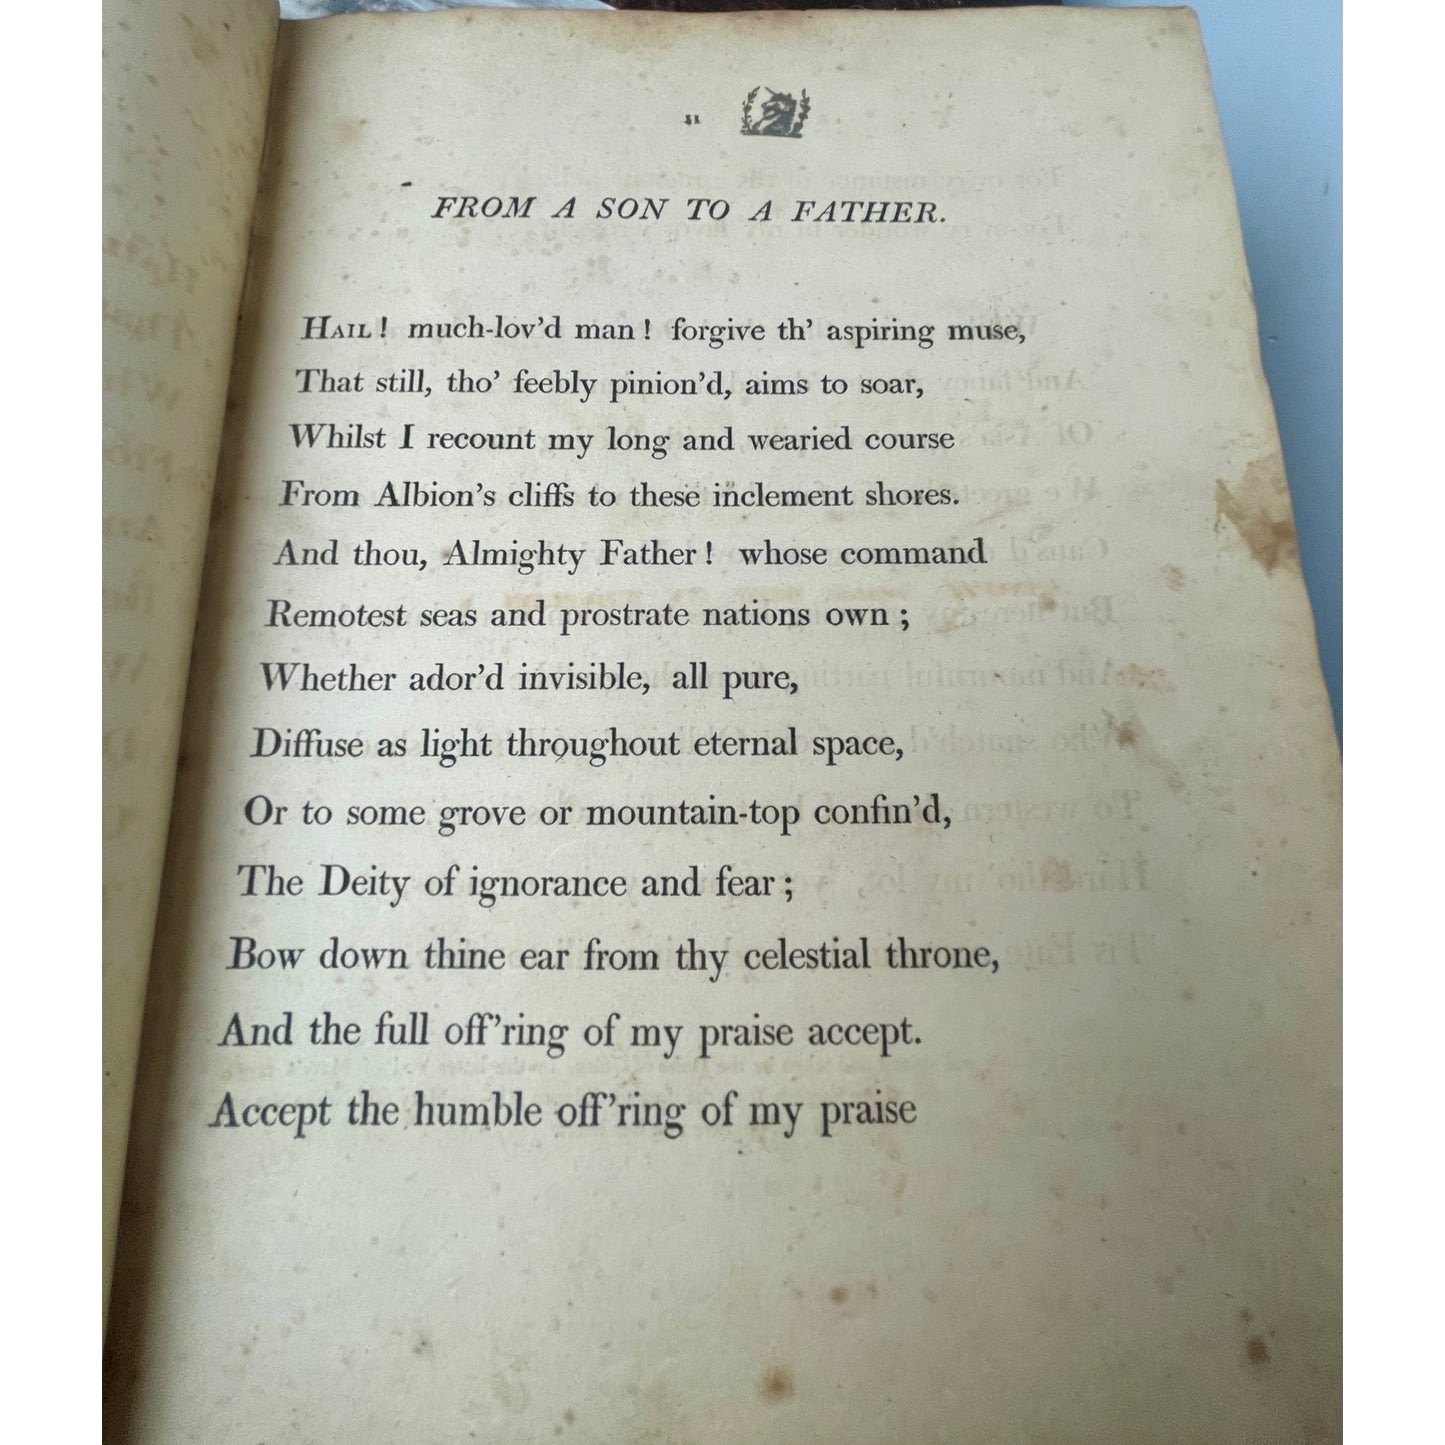 FROM A SON TO A FATHER.
HAIL! much-lov'd man! forgive th' aspiring muse,
That still, tho' feebly pinion'd, aims to soar,
Whilst I recount my long and wearied course
From Albion's cliffs to these inclement shores.
And thou, Almighty Father! whose command
Remotest seas and prostrate nations own;
Whether ador'd invisible, all pure,
Diffuse as light throughout eternal space,
Or to some grove or mountain-top confin'd,
The Deity of ignorance and fear;
Bow down thine ear from thy celestial throne,
And the full off'ring of my praise accept.
Accept the humble off'ring of my praise